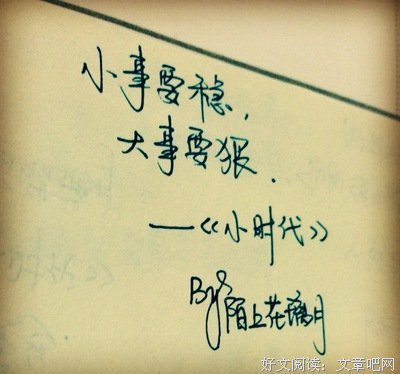 小事要稳，
大事要狠．
—《小时代》
By：陌上花璃月
好文阅读：文章吧网